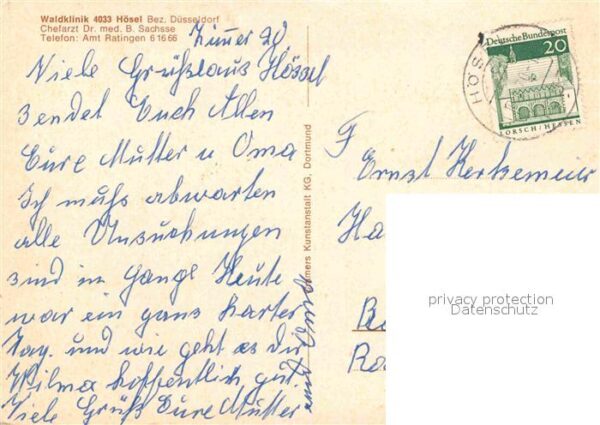 Waldklinik 4033 Hösel Bez. Düsseldorf
Chefarzt Dr. med. B. Sachsse
Telefon: Amt Ratingen 6 16 66
Zimer 20
Viele Grüße aus Hössel
sendet Euch Allen
Eure Mutter u Oma
Ich muß abwarten
alle Unsuchungen
sind im gange Heute
war ein ganz harter
Tag. und wie geht es dir
Wilma hoffentlich gut
Viele Grüß Eure Mutter
und Oma
Kunstanstalt KG, Dortmund
Deutsche Bundespost
20
LORSCH/HESSEN
HÖS
F
Ernst
Ha
Ro
privacy protection
Datenschutz